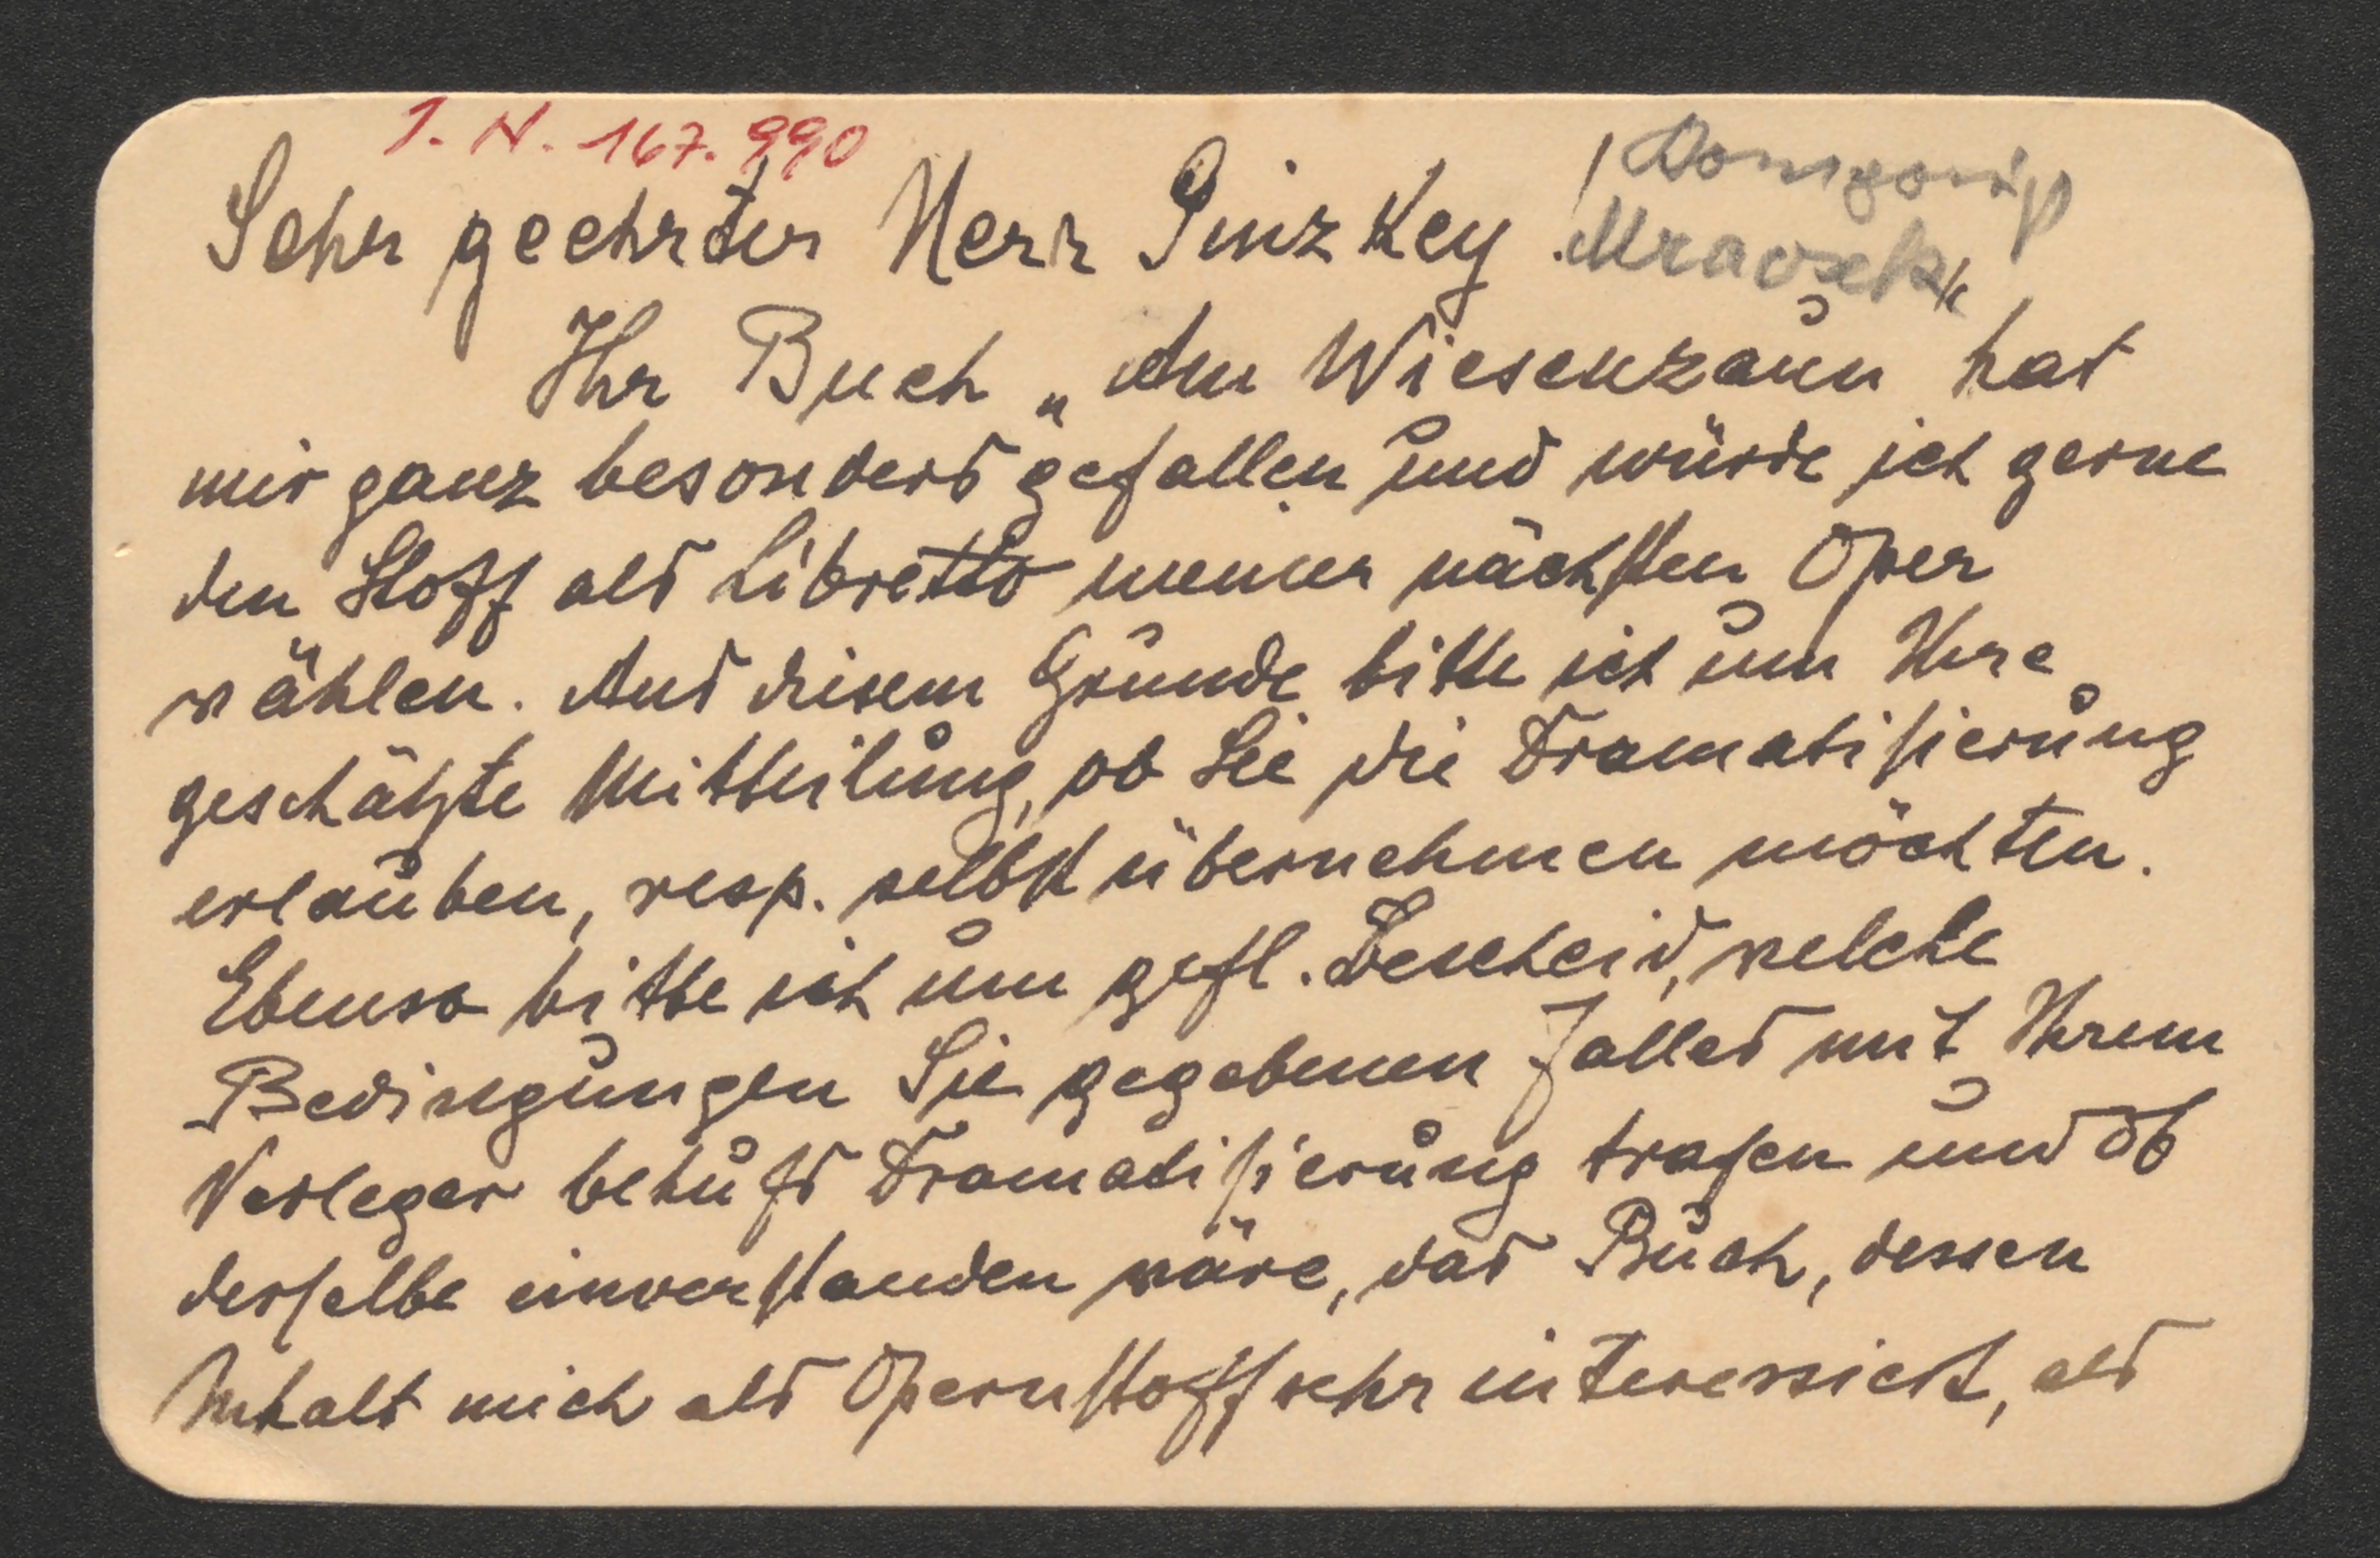 I. N. 167.990
Sehr geehrter Herr Ginzkey!
Mraczek
Ihr Buch „Am Wiesenzaun“ hat
mir ganz besonders gefallen und würde ich gerne
den Stoff als Libretto meiner nächsten Oper
wählen. Aus diesem Grunde bitte ich um Ihre
geschätzte Mitteilung, ob Sie die Dramatisierung
erlauben, resp. selbst übernehmen möchten.
Ebenso bitte ich um gefl. Bescheid, welche
Bedingungen Sie gegebenen Falles mit Ihrem
Verleger behufs Dramatisierung trafen und ob
derselbe einverstanden wäre, das Buch, dessen
Inhalt mich als Opernstoff sehr interessiert, als